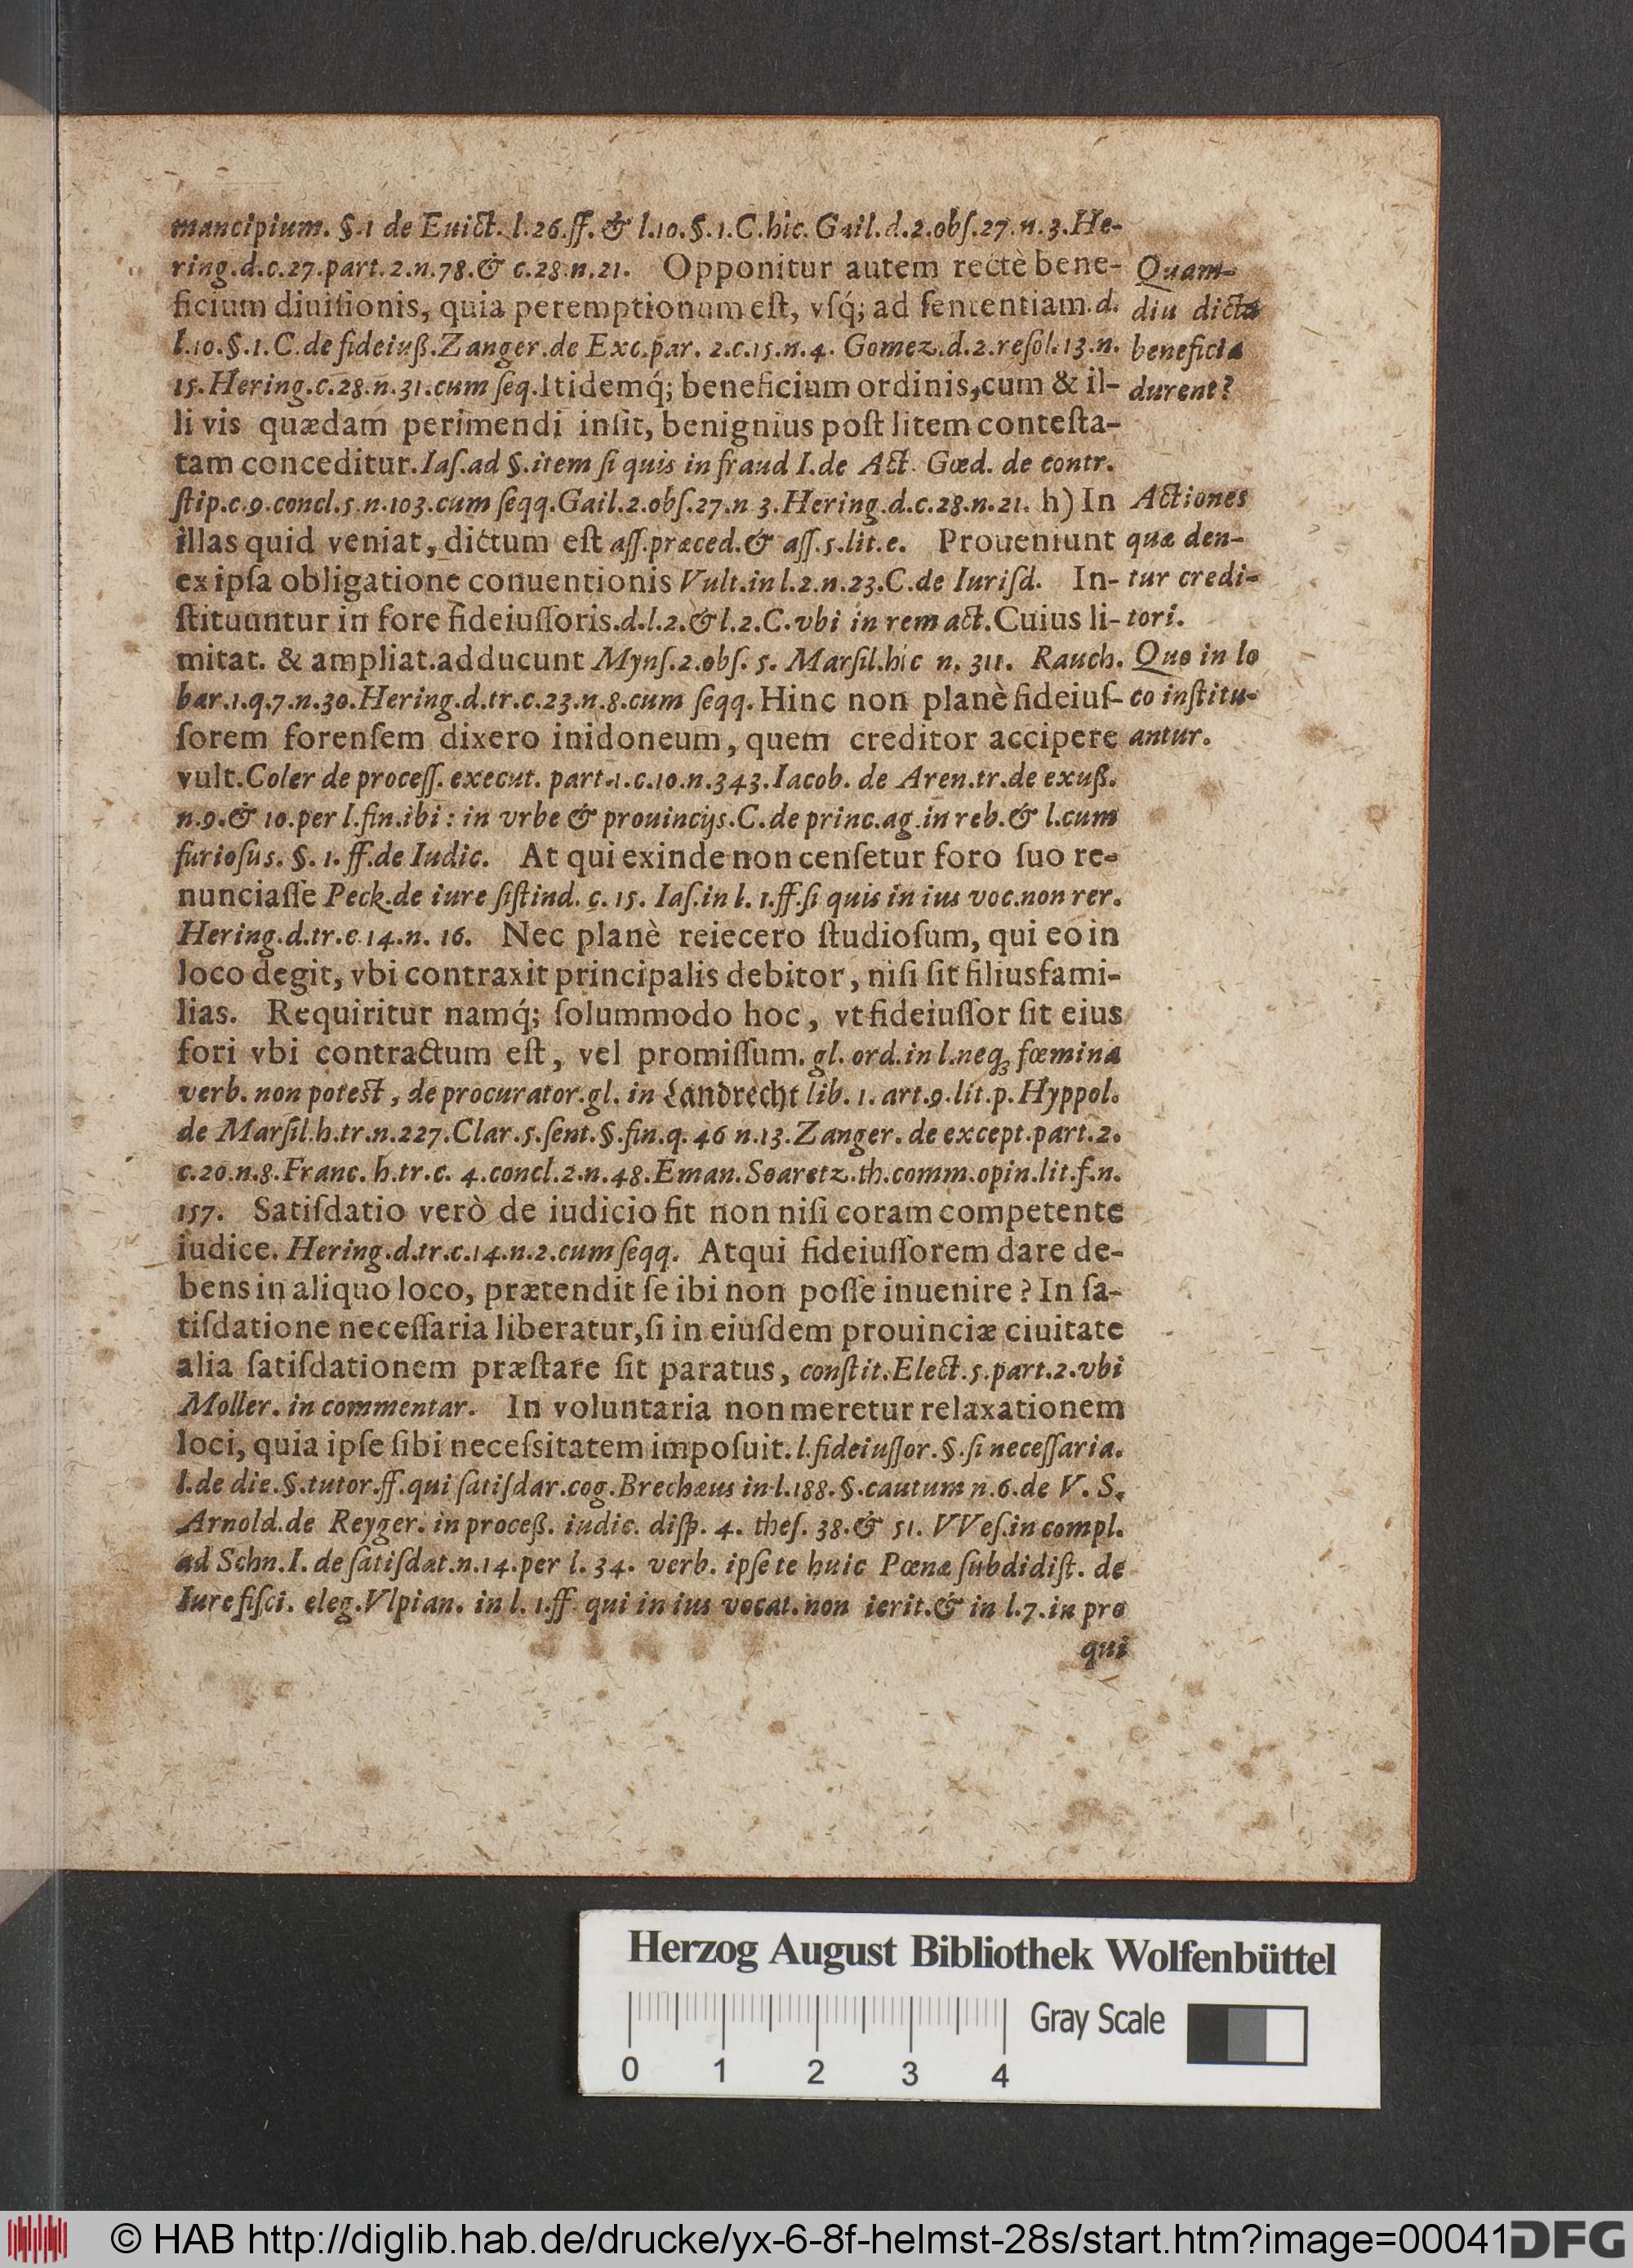 mancipium. §.1 de Euict. l.26.ff. & l.10.§.1.C.hic. Gail.d.2.obſ.27.n.3.He-
ring.d.c.27.part.2.n.78.& c.28.n.21. Opponitur autem rectè bene-
ficium diuiſionis, quia peremptionum eſt, vſq́; ad ſententiam.d.
l.10.§.1.C.de fideiuß.Zanger.de Exc.par. 2.c.15.n.4. Gomez.d.2.reſol.13.n.
15.Hering.c.28.n.31.cum ſeq.Itidemq́; beneficium ordinis,cum & il-
li vis quædam perimendi inſit, benignius poſt litem conteſta-
tam conceditur.Iaſ.ad §.item ſi quis in fraud I.de Act. Gœd. de contr.
ſtip.c.9.concl.5.n.103.cum ſeqq.Gail.2.obſ.27.n 3.Hering.d.c.28.n.21. h) In
illas quid veniat, dictum eſt aſſ.præced.& aſſ.5.lit.e. Proueniunt
ex ipſa obligatione conuentionis Vult.in l.2.n.23.C.de Iuriſd. In-
ſtituuntur in fore fideiuſſoris.d.l.2.& l.2.C.vbi in rem act.Cuius li-
mitat. & ampliat.adducunt Mynſ.2.obſ. 5. Marſil.hic n. 311. Rauch.
bar.1.q.7.n.30.Hering.d.tr.c.23.n.8.cum ſeqq. Hinc non planè fideiuſ-
ſorem forenſem dixero inidoneum, quem creditor accipere
vult.Coler de proceſſ. execut. part.1.c.10.n.343.Iacob. de Aren.tr.de exuß.
n.9.& 10.per l.fin.ibi: in vrbe & prouincijs.C.de princ.ag.in reb.& l.cum
furioſus. §. 1. ff.de Iudic. At qui exinde non cenſetur foro ſuo re-
nunciaſſe Peck.de iure ſiſtind. c. 15. Iaſ.in l. 1.ff.ſi quis in ius voc.non rer.
Hering.d.tr.c.14.n. 16. Nec planè reiecero ſtudioſum, qui eo in
loco degit, vbi contraxit principalis debitor, niſi ſit filiusfami-
lias. Requiritur namq́; ſolummodo hoc, vt fideiuſſor ſit eius
fori vbi contractum eſt, vel promiſſum. gl. ord.in l.neqꝫ fœmina
verb. non potest, de procurator.gl. in Landrecht lib. 1. art.9.lit.p.Hyppol.
de Marſil.h.tr.n.227.Clar.5.ſent.§.fin.q.46 n.13.Zanger. de except.part.2.
c.20.n.8.Franc. h.tr.c. 4.concl.2.n.48.Eman.Soaretz.th.comm.opin.lit.f.n.
157. Satiſdatio verò de iudicio fit non niſi coram competente
iudice. Hering.d.tr.c.14.n.2.cum ſeqq. Atqui fideiuſſorem dare de-
bens in aliquo loco, prætendit ſe ibi non poſſe inuenire? In ſa-
tiſdatione neceſſaria liberatur,ſi in eiuſdem prouinciæ ciuitate
alia ſatiſdationem præſtare ſit paratus, conſtit.Elect.5.part.2.vbi
Moller. in commentar. In voluntaria non meretur relaxationem
loci, quia ipſe ſibi neceſsitatem impoſuit. l.fideiuſſor.§.ſi neceſſaria.
l.de die.§.tutor.ff.qui ſatiſdar.cog.Brechæus in l.188.§.cautum n.6.de V. S.
Arnold.de Reyger. in proceß. iudic. diſp. 4. theſ. 38.& 51. VVeſ.in compl.
ad Schn.I. de ſatiſdat.n.14.per l. 34. verb. ipſe te huic Pœnæ ſubdidiſt. de
Iure fiſci. eleg.Vlpian. in l. 1.ff. qui in ius vocat.non ierit.& in l.7.in pro
qui
Quam-
diu dicta
beneficia
durent?
Actiones
quæ den-
tur credi-
tori.
Quo in lo
co inſtitu-
antur.
Herzog August Bibliothek Wolfenbüttel
Gray Scale
0 1 2 3 4
© HAB http://diglib.hab.de/drucke/yx-6-8f-helmst-28s/start.htm?image=00041
DFG